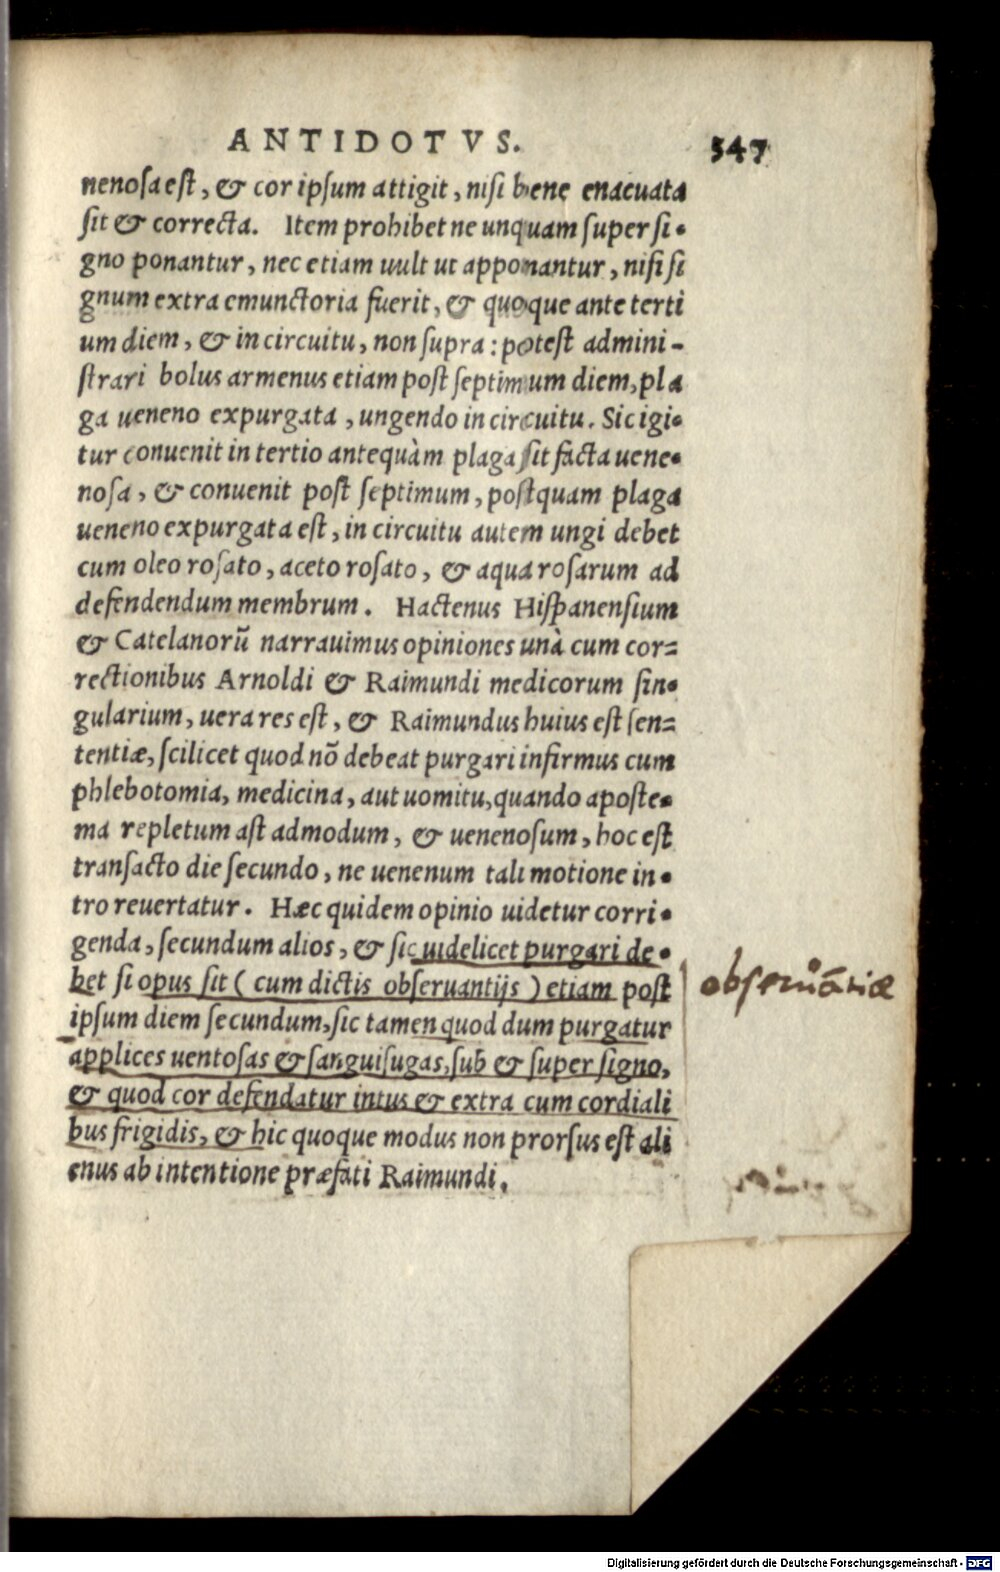 ANTIDOTVS. 547
nenosa est, & cor ipsum attigit, nisi bene enacuata
sit & correcta. Item prohibet ne unquam super si-
gno ponantur, nec etiam uult ut apponantur, nisi si
gnum extra emunctoria fuerit, & quoque ante terti
um diem, & in circuitu, non supra: potest admini-
strari bolus armenus etiam post septimum diem, pla
ga ueneno expurgata, ungendo in circuitu. Sic igi-
tur conuenit in tertio antequàm plaga sit facta uene-
nosa, & conuenit post septimum, postquam plaga
ueneno expurgata est, in circuitu autem ungi debet
cum oleo rosato, aceto rosato, & aqua rosarum ad
defendendum membrum. Hactenus Hispanensium
& Catelanorũ narrauimus opiniones unà cum cor-
rectionibus Arnoldi & Raimundi medicorum sin-
gularium, uera res est, & Raimundus huius est sen-
tentiæ, scilicet quod nõ debeat purgari infirmus cum
phlebotomia, medicina, aut uomitu, quando aposte-
ma repletum ast admodum, & uenenosum, hoc est
transacto die secundo, ne uenenum tali motione in-
tro reuertatur. Hæc quidem opinio uidetur corri-
genda, secundum alios, & sic uidelicet purgari de-
bet si opus sit ( cum dictis obseruantijs ) etiam post
ipsum diem secundum, sic tamen quod dum purgatur
applices uentosas & sanguisugas, sub & super signo,
& quod cor defendatur intus & extra cum cordiali
bus frigidis, & hic quoque modus non prorsus est ali
enus ab intentione præfati Raimundi.
Digitalisierung gefördert durch die Deutsche Forschungsgemeinschaft - DFG